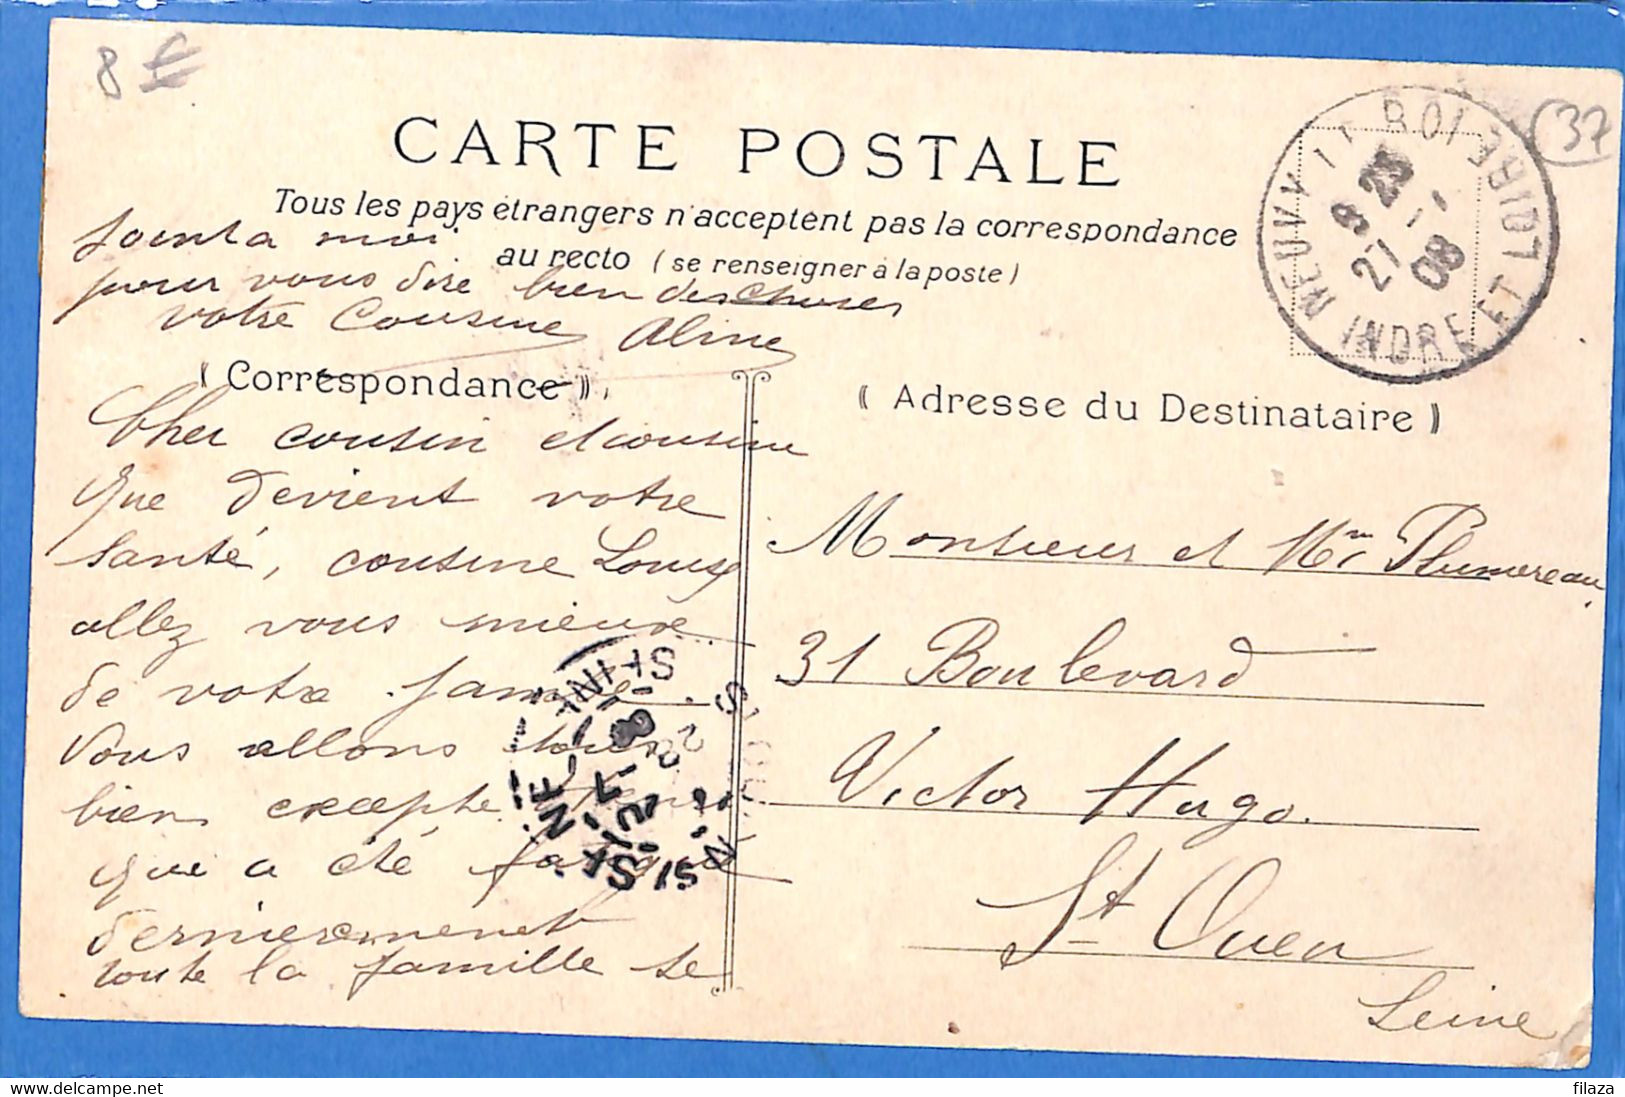 8 €
37
CARTE POSTALE
Tous les pays étrangers n'acceptent pas la correspondance
au recto (se renseigner à la poste)
NEUVY LE ROI
8 23
27 - 1
08
INDRE ET LOIRE
Joint a moi
pour vous dire bien des choses
votre Cousine Aline
(Correspondance)
Cher cousin et cousine
que devient votre
santé, cousine Louise
allez vous mieux
de votre jambe
Vous allons tous
bien excepte
que a été fatigué
dernierement
toute la famille se
(Adresse du Destinataire)
Monsieur et Mme Plumereau
31 Boulevard
Victor Hugo.
St Ouen
Seine
ST OUEN S/ SEINE
SEINE
delcampe.net
filaza